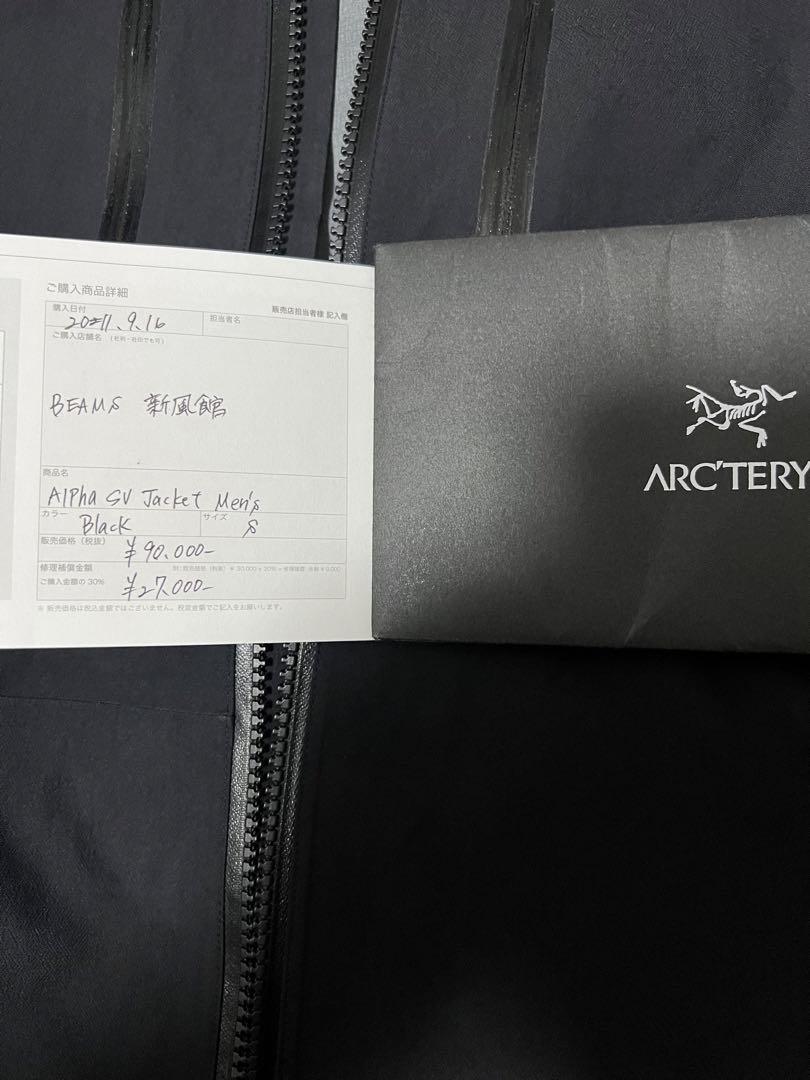 ご購入商品詳細
販売店担当者様 記入欄
購入日付
担当者名
ご購入店舗名 (社判・社印でも可)
BEAMS 新風館
商品名
Alpha SV Jacket Men's
カラー
Black
サイズ
S
販売価格(税抜)
¥90.000-
修理補償金額
例:販売価格(税抜)¥30,000 x 30% = 修理補償 金額 ¥9,000
ご購入金額の30%
¥27.000-
※ 販売価格は税込金額ではございません。税抜金額でご記入をお願いします。
ARC'TERY